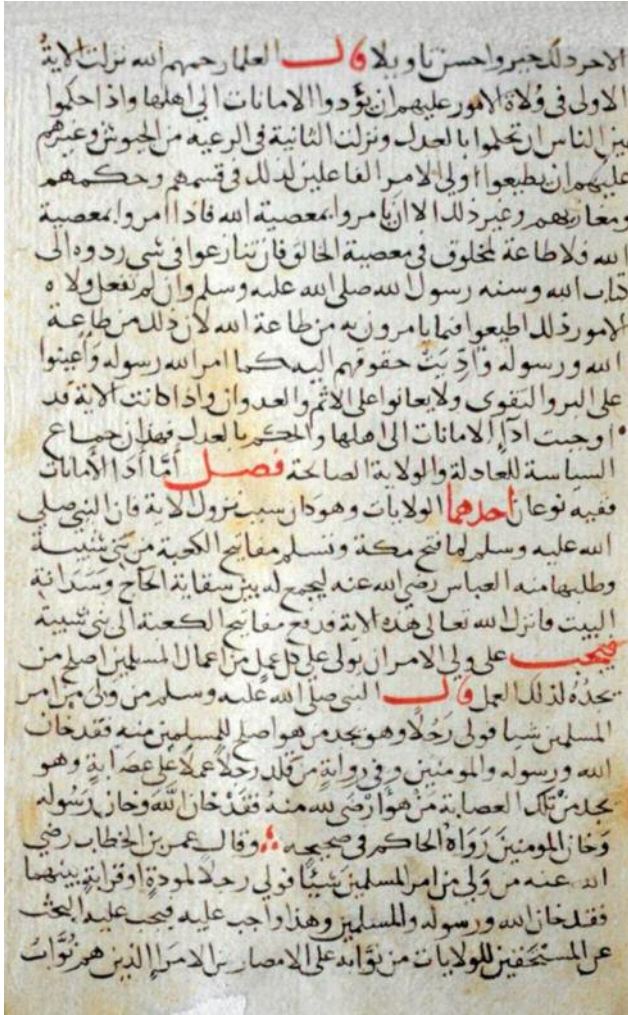 الاخر ذلك خير واحسن تاويلا قال العلما رحمهم الله نزلت الاية
الاولى فى ولاة الامور عليهم ان يؤدوا الامانات الى اهلها واذا حكموا
بين الناس ان تحكموا بالعدل ونزلت الثانية فى الرعيه من الجيوش وغيرهم
عليهم ان يطيعوا اولي الامر الفاعلين لذلك فى قسمهم وحكمهم
ومغازيهم وغير ذلك الا ان يامروا بمعصية الله فاذا امروا بمعصية
الله فلا طاعة لمخلوق فى معصية الخالق فان تنازعوا فى شى ردوه الى
كتاب الله وسنه رسول الله صلى الله عليه وسلم وان لم تفعل ولاه
الامور ذلك اطيعوا فيما يامرون به من طاعة الله لان ذلك من طاعة
الله ورسوله وادِّيَتْ حقوقهم اليه كما امر الله رسوله واعينوا
على البر والتقوى ولا يعانوا على الاثم والعدوان واذا كانت الاية قد
اوجبت ادآء الامانات الى اهلها والحكم بالعدل فهذان جماع
السياسة للعادلة والولاية الصالحة فصل امَّا ادَا الأمانات
ففيه نوعان احدهما الولايات وهو كان سبب نزول الاية فان النبى صلى
الله عليه وسلم لما فتح مكة وتسلم مفاتيح الكعبة من بنى شيبة
وطلبها منه العباس رضى الله عنه ليجمع له بين سقاية الحاج وسَدانة
البيت فانزل الله تعالى هذه الاية فدفع مفاتيح الكعبة الى بنى شيبة
فيجب على ولي الامر ان يولى على كل عمل من اعمال المسلمين اصلح من
يجدهُ لذلك العمل قال النبى صلى الله عليه وسلم من ولى من امر
المسلمين شيا فولى رَجُلًا وهو يجد من هو اصلح للمسلمين منه فقد خان
الله ورسوله والمومنين وفى رواية من قلد رجلا عملًا على عصَابةٍ وهو
يجد من تلك العصابة من هو أرْضَى لله منهُ فقَدْ خان اللَّه وخان رَسُوله
وَخان المومنينَ رَوَاهُ الحاكم فى صحيحه وقال عمر بن الخطاب رضي
الله عنه من وَلي من امر المسلمين شيْئًا فولي رجلا لمودةٍ او قرابةٍ بينهما
فقد خان الله ورسوله والمسلمين وهذا واجب عليه فيجب عليه البحث
عن المستحقين للولايات من نوَّابه على الامصار من الامرَاء الذين هم نُوَّابُ